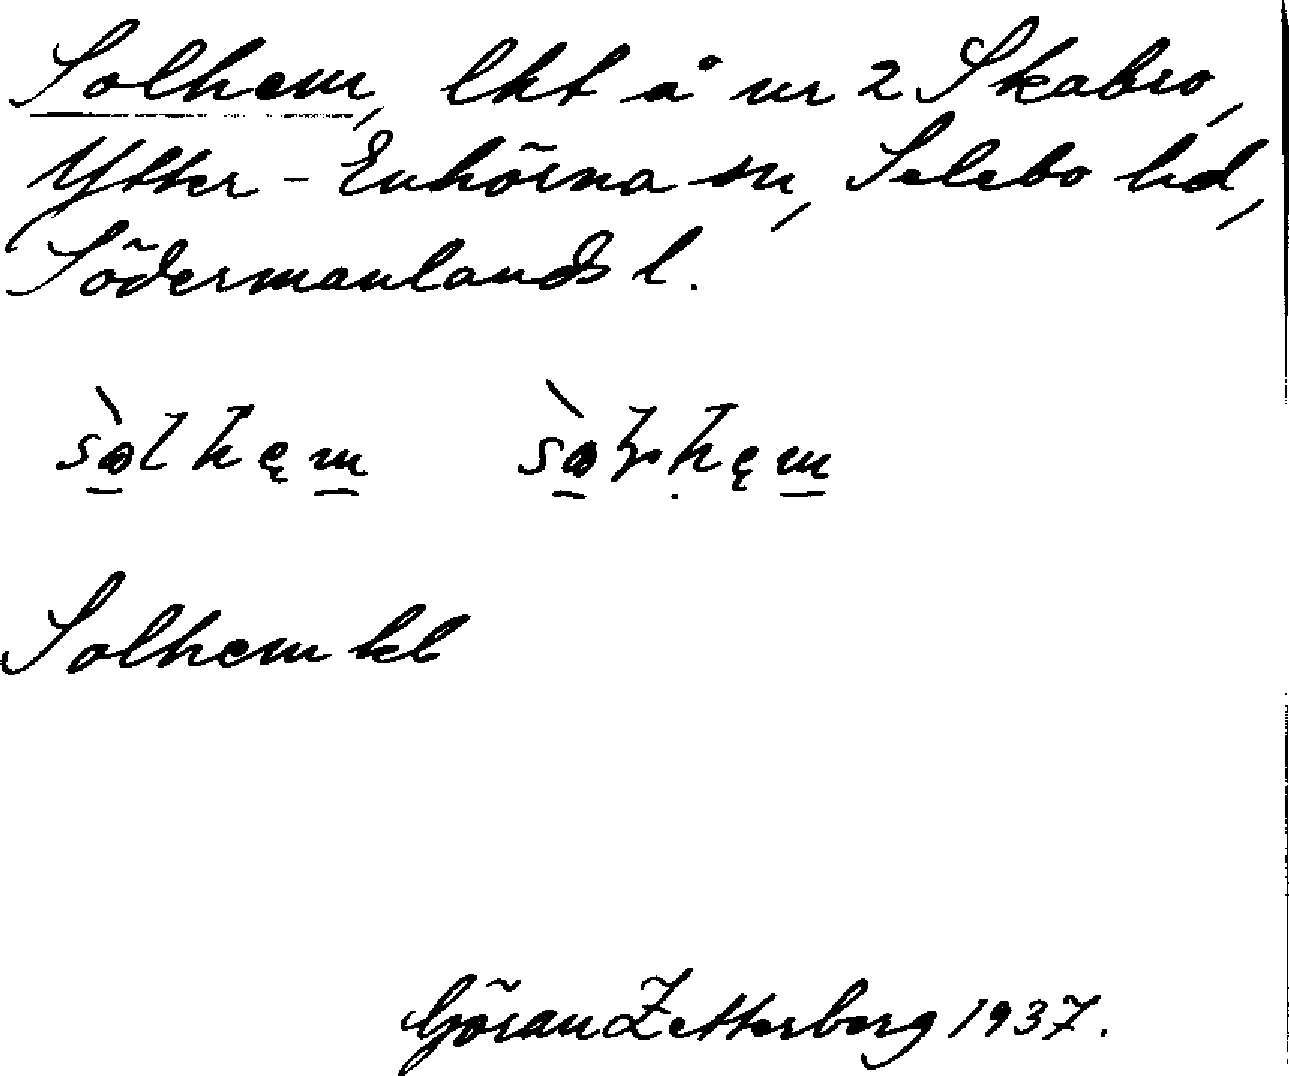 Solhem, lht å nr 2 Skabro,
Ytter-Enhörna sn, Selebo hd,
Södermanlands l.
Solhem kb
Göran Zetterberg 1937.